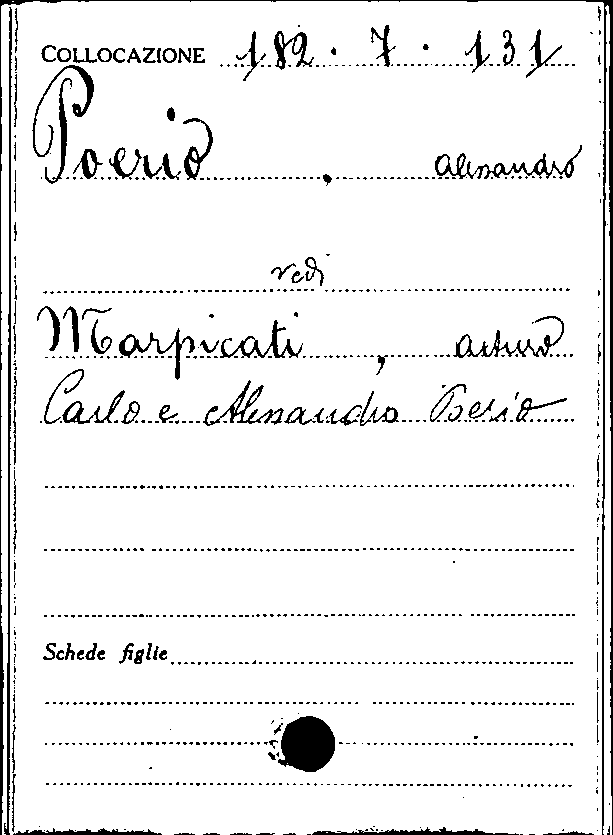 COLLOCAZIONE 182 . 7 . 131
Poerio , Alessandro
vedi
Marpicati , Arturo
Carlo e Alessandro Poerio
Schede figlie